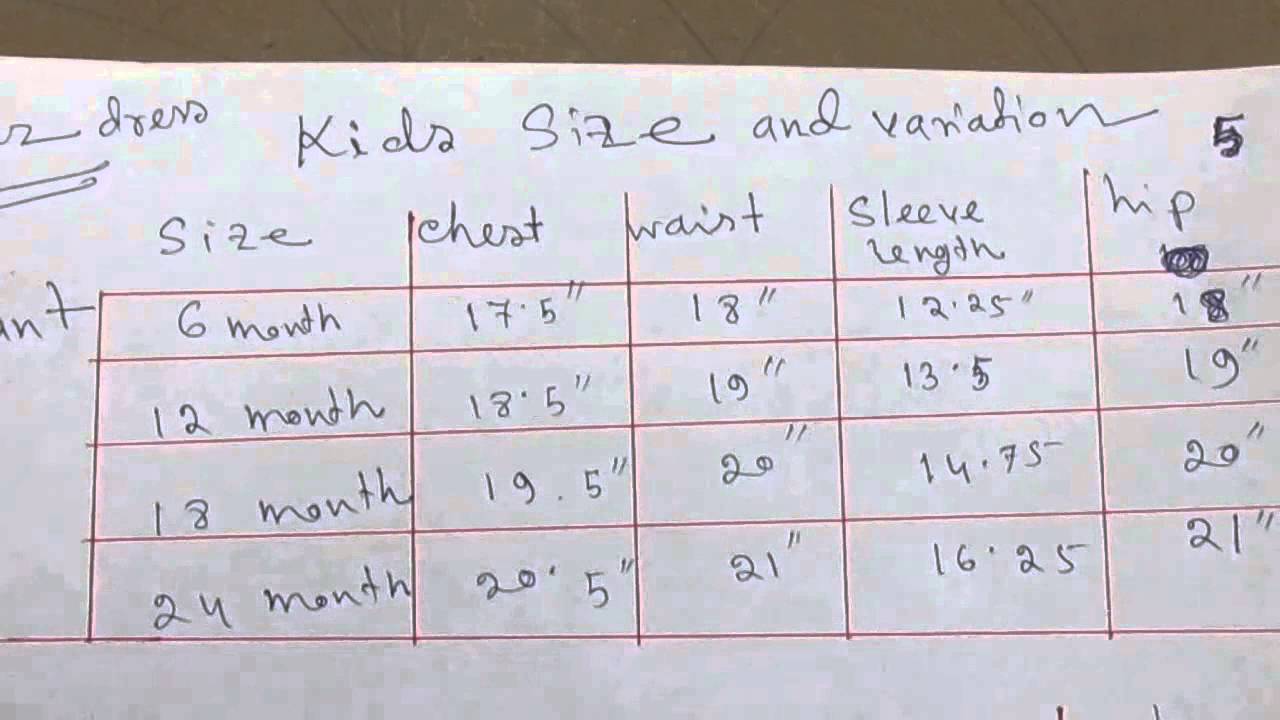 dress Kids Size and variation 5
Size chest waist Sleeve length hip
6 month 17.5" 18" 12.25" 18"
12 month 18.5" 19" 13.5 19"
18 month 19.5" 20" 14.75 20"
24 month 20.5" 21" 16.25 21"